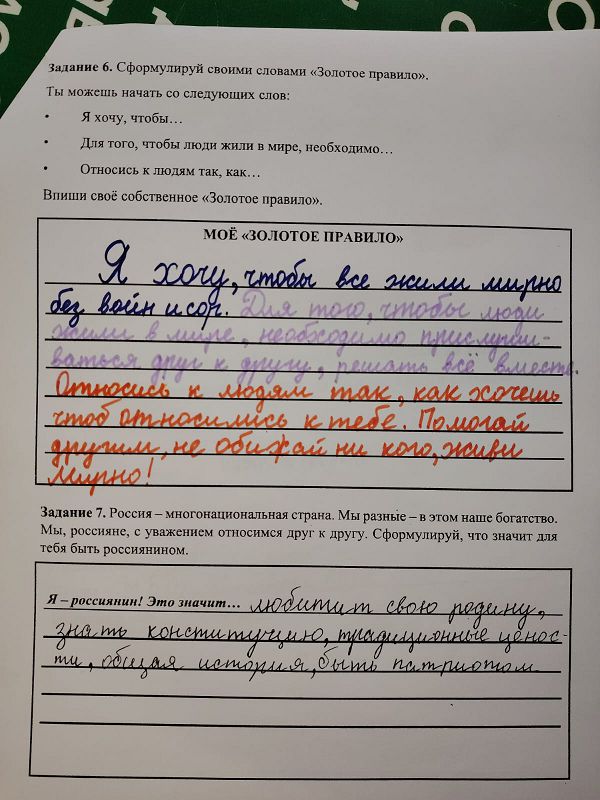 Задание 6. Сформулируй своими словами «Золотое правило».
Ты можешь начать со следующих слов:
• Я хочу, чтобы…
• Для того, чтобы люди жили в мире, необходимо…
• Относись к людям так, как…
Впиши своё собственное «Золотое правило».
МОЁ «ЗОЛОТОЕ ПРАВИЛО»
Я хочу, чтобы все жили мирно
без войн и сор. Для того, чтобы люди
жили в мире, необходимо прислуши-
ваться друг к другу, решать всё вместе.
Относись к людям так, как хочешь
чтоб относились к тебе. Помогай
другим, не обижай ни кого, живи
мирно!
Задание 7. Россия – многонациональная страна. Мы разные – в этом наше богатство.
Мы, россияне, с уважением относимся друг к другу. Сформулируй, что значит для
тебя быть россиянином.
Я – россиянин! Это значит… любитит свою родину,
знать конституцию, традиционные ценос-
ти, общая история, быть патриотом.